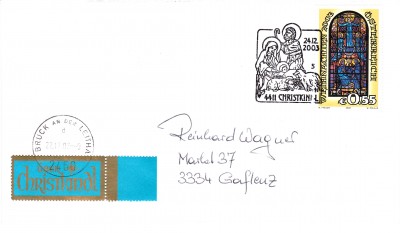 24.12.
2003
5
4411 CHRISTKINDL
WEIHNACHTEN 2003
ÖSTERREICH
€0,55
BRUCK AN DER LEITHA
d
Reinhard Wagner
Markt 37
3334 Gaflenz
Christkindl